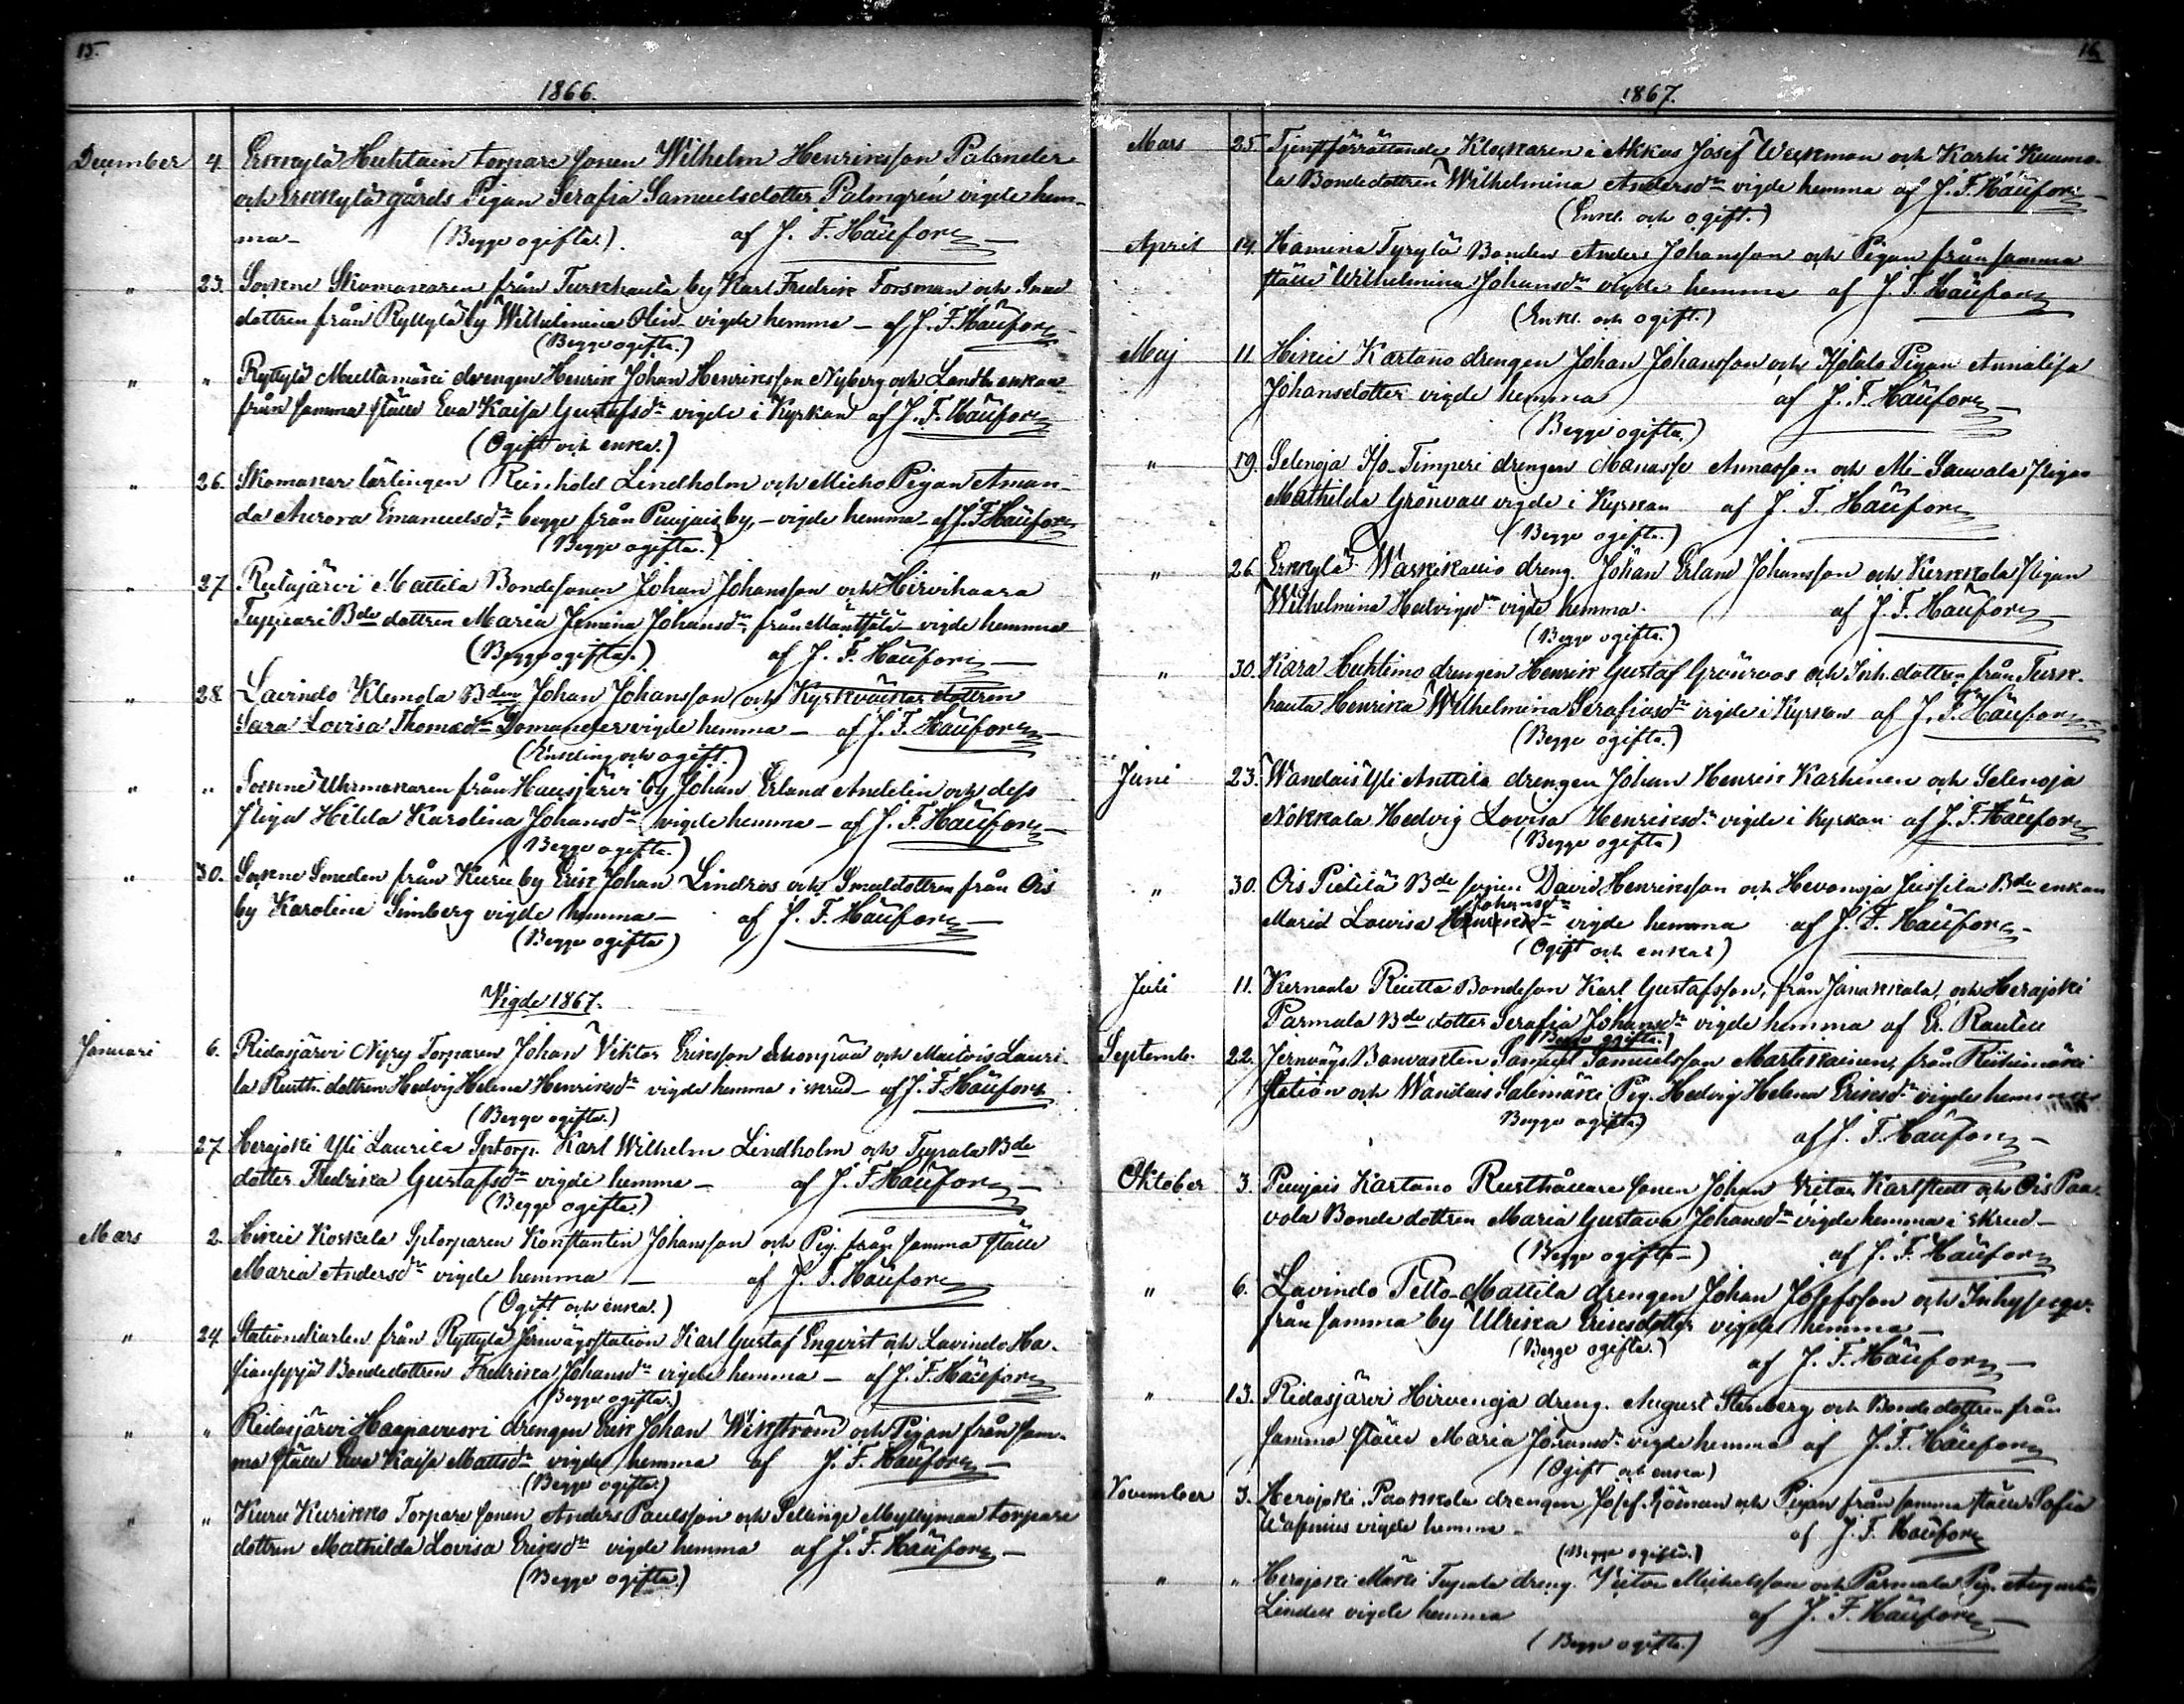 15.
1866.
December 4. Erkkylä Huhtain torpare sonen Wilhelm Henriksson Palander
och Erkkylä gårds Pigan Serafia Samuelsdotter Palmgrén vigde hem-
ma- (Begge ogifta.) af J. F. Häufore
" 23. Sockne Skomakaren från Turkhauta by Karl Fredrik Forsman och
dottren från Ryttylä by Wilhelmina Olin- vigde hemma - af J. F. Häufore
(Begge ogifta.)
" " Ryttylä Multamäki drengen Henrik Johan Henriksson Nyberg och Landb. enkan
från samma ställe Eva Kaisa Gustafsdr vigde i Kyrkan af J. F. Häufore
(Ogift och enka.)
" 26. Skomakar lärlingen Reinhold Lindholm och Micho Pigan Aman-
da Aurora Emanuelsdr, begge från Puujais by, - vigde hemma - af J. F. Häufore
(Begge ogifta.)
" 27 Rutajärvi Mattila Bondesonen Johan Johansson och Hirvihaara
Tuppeari Bde dottren Maria Jemina Johansdr, från Mäntsälä - vigde hemma
(Begge ogifta.) af J. F. Häufore
" 28 Lavindo Klemola Bden Johan Johansson och Kyrkväktar dottren
Sara Lovisa Thomasdr Domander vigde hemma - af J. F. Häufore
(Enkling och ogift.)
" " Sockne Uhrmakaren från Hausjärvi by Johan Erland Andelin och dess
Piga Hilda Karolina Johansdr vigde hemma - af J. F. Häufore
(Begge ogifta.)
" 30. Sockne Smeden från Kuru by Erik Johan Lindros och Smeddottren från Ois
by Karolina Simberg vigde hemma - af J. F. Häufore
(Begge ogifta)
Vigde 1867.
Januari 6. Ridasjärvi Nyry Torparen Johan Viktor Eriksson och Maitois Lauri-
la Rusth. dottren Hedvig Helena Henriksdr vigde hemma i skrud - af J. F. Häufore
(Begge ogifta.)
" 27 Herajoki Yli Laurila Sptorp. Karl Wilhelm Lindholm och Tupala Bde
dotter Fredrika Gustafsdr vigde hemma - af J. F. Häufore
(Begge ogifta.)
Mars 2. Hikiä Koskela Sptorparen Konstantin Johansson och Pig. från samma ställe
Maria Andersdr vigde hemma - af J. F. Häufore
(Ogift och enka.)
" 24 Stationskarlen från Ryttylä Jernvägsstation Karl Gustaf Enqvist och Lavindo Ha-
Bondedottren Fredrika Johansdr vigde hemma - af J. F. Häufore
(Begge ogifta.)
" " Ridasjärvi Haapavuori drengen Erik Johan Wikström och Pigan från sam-
ma ställe Eva Kaisa Mattsdr vigde hemma af J. F. Häufore
(Begge ogifta.)
" " Kuru Kurikko Torpare sonen Anders Paulsson och Selänge Myllymaa torpare
dottren Mathilda Lovisa Eriksdr vigde hemma af J. F. Häufore
(Begge ogifta.)
16
1867.
Mars 25 Tjenstförrättande Klockaren i Akkas Josef Weckman och Karhi Kuumo-
la Bondedottren Wilhelmina Andersdr vigde hemma af J. F. Häufore
(Enkl. och ogift.)
April 14. Hamina Tyrylä Bonden Anders Johansson och Pigan från samma
ställe Wilhelmina Johansdr vigde hemma af J. F. Häufore
(Enkl. och ogift.)
Maj 11 Hikiä Kartano drengen Johan Johansson och Isotalo Pigan Annalisa
Johansdotter vigde hemma af J. F. Häufore
(Begge ogifta.)
" 19. Selenoja Iso-Timperi drengen Manasse Annasson och Ali-Sauvala Pigan
Mathilda Grönvall vigde i Kyrkan af J. F. Häufore
(Begge ogifta.)
" 26 Erkkylä Waskikallio dreng. Johan Erland Johansson och Kerkkola Pigan
Wilhelmina Hedvigsdr vigde hemma. af J. F. Häufore
(Begge ogifta.)
" 30. Kara Huhtimo drengen Henrik Gustaf Grönroos och Inh. dottren från Turk-
hauta Henrika Wilhelmina Serafiasdr vigde i Kyrkan af J. F. Häufore
(Begge ogifta.)
Juni 23. Wandais Yli Anttila drengen Johan Henrik Karhinen och Selenoja
Nokkala Hedvig Lovisa Henriksdr vigde i Kyrkan af J. F. Häufore
(Begge ogifta)
" 30. Ois Pietilä Bde sonen David Henriksson och Hevonoja Jussila Bde enkan
Johansdr
Maria Lowisa Henriksdr vigde hemma af J. F. Häufore
(Ogift och enka.)
Juli 11. Kernaala Riutta Bondeson Karl Gustafsson, från Janakkala, och Herajoki
Parmala Bde dotter Serafia Johansdr vigde hemma af Er. Rautell
Begge ogifta.)
Septemb. 22. Jernvägs Banvakten Samuel Samuelsson Martikainen, från Riihimäki
Station och Wandais Salimäki Pig. Hedvig Helena Eriksdr vigde hemma
Begge ogifta.) af J. F. Häufore
Oktober 3. Puujais Kartano Rusthållare sonen Johan Viktor Karlstedt och Ois Paa-
vola Bonde dottren Maria Gustava Johansdr vigde hemma i skrud -
(Begge ogifta -) af J. F. Häufore
" 6. Lavindo Pelto-Mattila drengen Johan Josefsson och Inhyseqv.
från samma by Ulrika Eriksdotter vigde hemma -
(Begge ogifta.) af J. F. Häufore
" 13. Ridasjärvi Hirvenoja dreng. August Stenberg och Bondedottren från
samma ställe Maria Johansdr vigde hemma af J. F. Häufore
(Ogift och enka)
November 3. Herajoki Paakkola drengen Josef Sjöman och Pigan från samma ställe Sofia
Wasenius vigde hemma - af J. F. Häufore
(Begge ogifta.)
" " Herajoki Mäki Tupala dreng. Viktor Michelsson och Parmala Pig. Augusta
Lindell vigde hemma af J. F. Häufore
(Begge ogifta.)